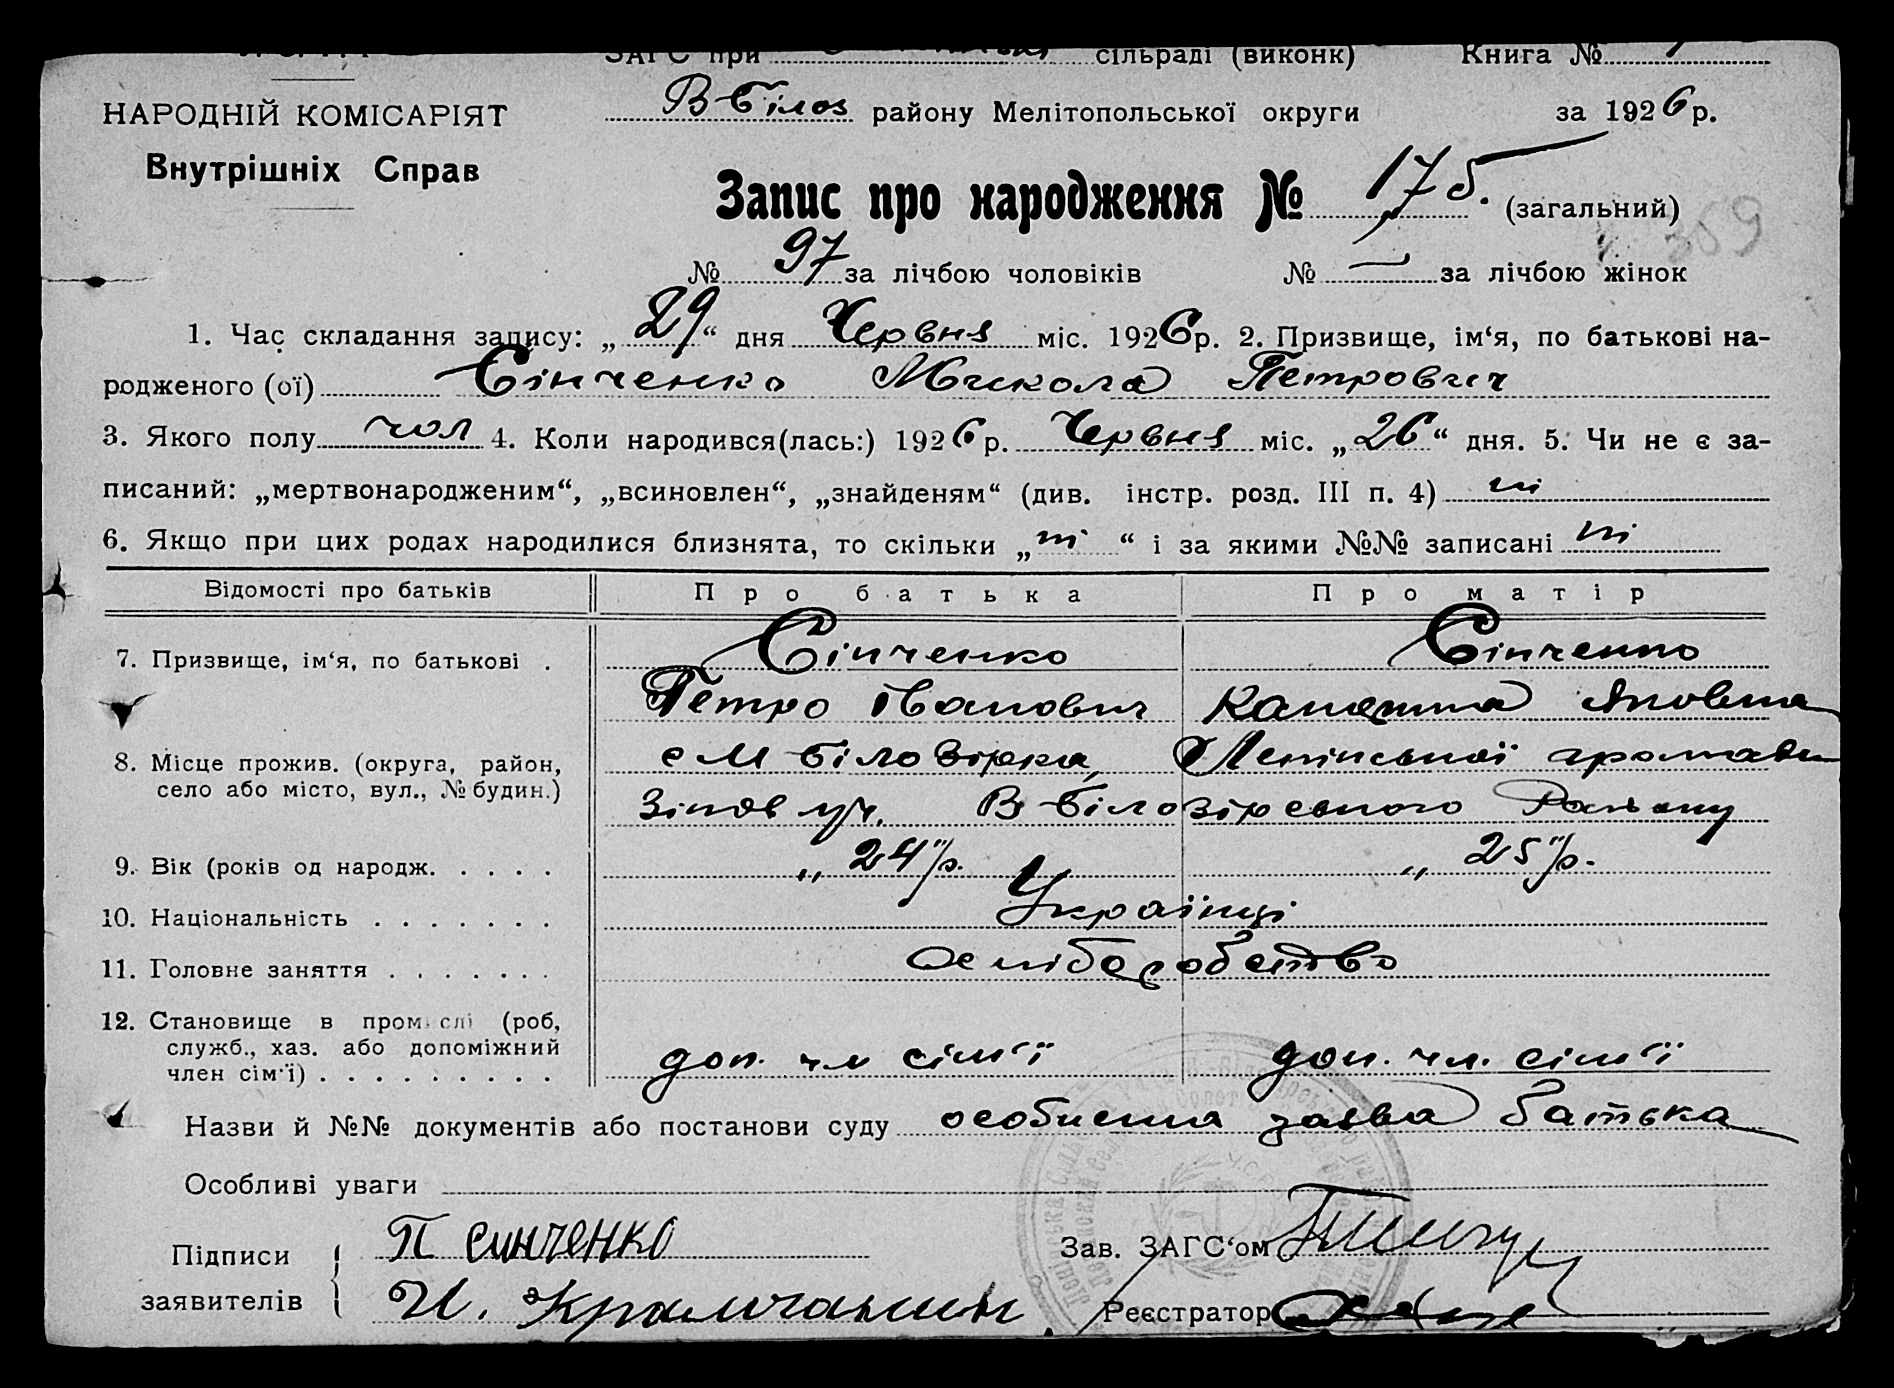 ЗАГС при сільраді (виконк) Книга №
НАРОДНІЙ КОМІСАРІЯТ
Внутрішніх Справ
В-Білоз району Мелітопольської округи за 1926 р.
Запис про народження № 175. (загальний)
359
№ 97 за лічбою чоловіків № — за лічбою жінок
1. Час складання запису: „29“ дня Червня міс. 1926 р. 2. Призвище, ім‘я, по батькові на-
родженого (ої) Сінченко Микола Петрович
3. Якого полу чол 4. Коли народився(лась:) 1926 р. Червня міс. „26“ дня. 5. Чи не є за-
писаний: „мертвонародженим“, „всиновлен“, „знайденям“ (див. інстр. розд. III п. 4) ні
6. Якщо при цих родах народилися близнята, то скільки „ні“ і за якими №№ записані ні
Відомості про батьків Про батька Про матір
7. Призвище, ім‘я, по батькові . Сінченко Сінченко
Петро Іванович Яковна
8. Місце прожив. (округа, район, с М Білозірка, Ленінської громади
село або місто, вул., № будин.) В Білозірського Району
9. Вік (років од народж. . . . . „ 24 р. „ 25 р.
10. Національність . . . . . . . Українці
11. Головне заняття . . . . . . .
12. Становище в промислі (роб, служб., хаз. або допоміжний член сім‘ї) . . . . . . . . . доп. чл сім‘ї доп. чл. сім‘ї
Назви й №№ документів або постанови суду особиста заява батька
Особливі уваги
Підписи П Синченко Зав. ЗАГС‘ом
заявителів И. Крамчанин Реєстратор